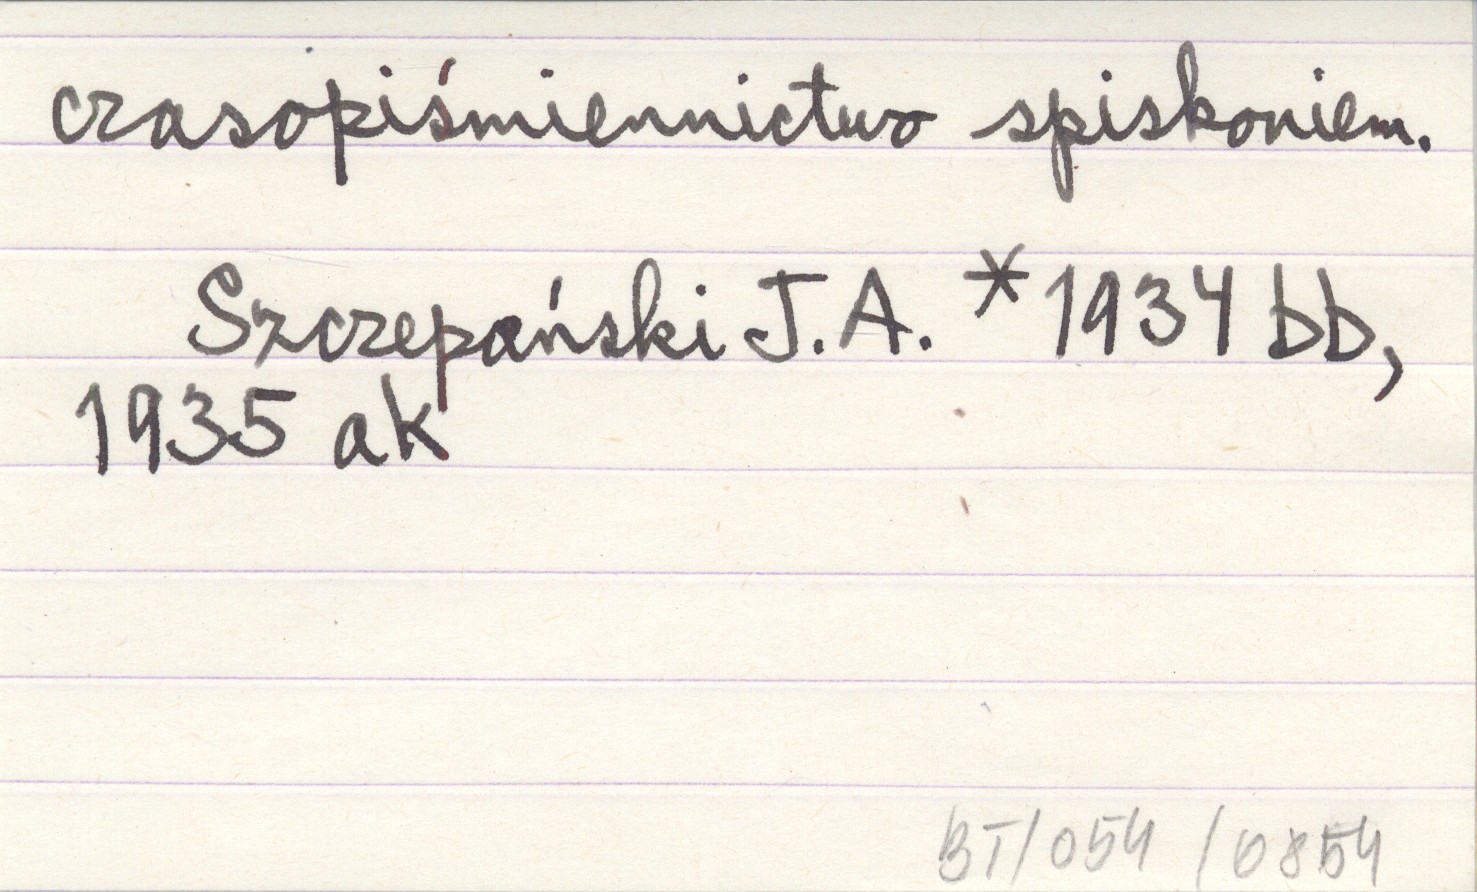 czasopiśmiennictwo spiskoniem.
Szczepański J.A. *1934 bb,
1935 ak
BT/054 /0854